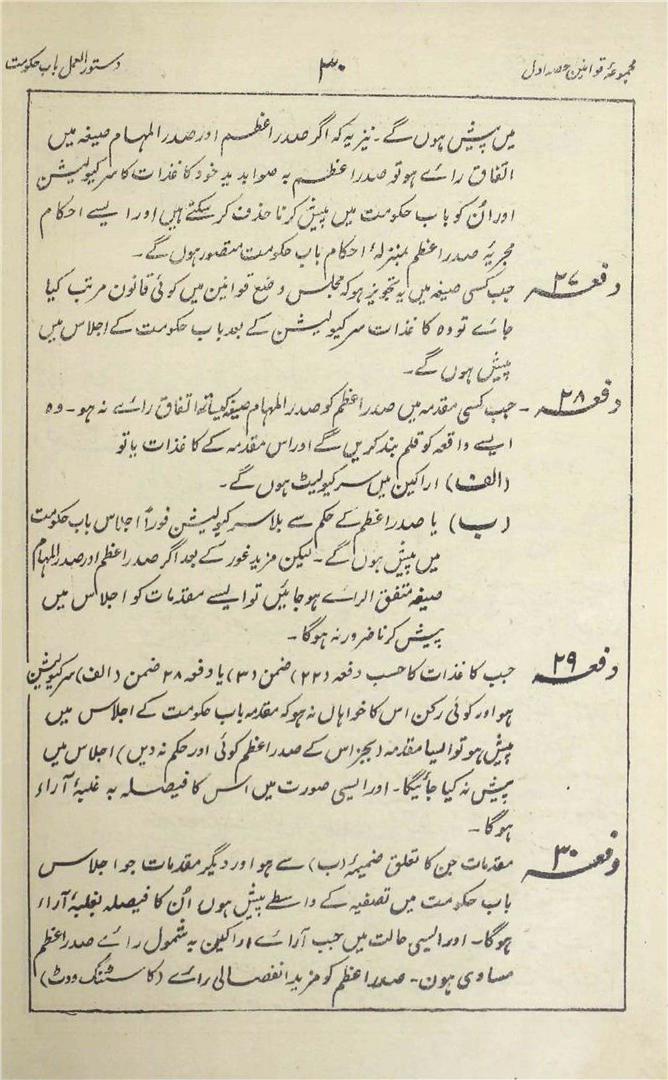 مجموعۂ قوانین حصہ اول
۳۰
دستور العمل باب حکومت
میں پیش ہوں گے۔ نیز یہ کہ اگر صدر اعظم اور صدر المہام صیغہ میں
اتفاق رائے ہو تو صدر اعظم بہ صوابدید خود کاغذات کا سرکیولیشن
اور اُن کو باب حکومت میں پیش کرنا حذف کر سکتے ہیں اور ایسے احکام
مجریۂ صدر اعظم بمنزلۂ احکام باب حکومت متصور ہوں گے۔
دفعہ ۲۷ جب کسی صیغہ میں یہ تجویز ہو کہ مجلس وضع قوانین میں کوئی قانون مرتب کیا
جائے تو وہ کاغذات سرکیولیشن کے بعد باب حکومت کے اجلاس میں
پیش ہوں گے۔
دفعہ ۲۸۔ جب کسی مقدمہ میں صدر اعظم کو صدر المہام صیغہ کیساتھ اتفاق رائے نہ ہو۔ وہ
ایسے واقعہ کو قلم بند کریں گے اور اس مقدمہ کے کاغذات یا تو
(الف) اراکین میں سرکیولیٹ ہوں گے۔
(ب) یا صدر اعظم کے حکم سے بلا سرکیولیشن فوراً اجلاس باب حکومت
میں پیش ہوں گے۔ لیکن مزید غور کے بعد اگر صدر اعظم اور صدر المہام
صیغہ متفق الرائے ہو جائیں تو ایسے مقدمات کو اجلاس میں
پیش کرنا ضرور نہ ہوگا۔
دفعہ ۲۹ جب کاغذات کا حسب دفعہ (۲۲) ضمن (۳) یا دفعہ ۲۸ ضمن (الف) سرکیولیشن
ہو اور کوئی رکن اس کا خواہاں نہ ہو کہ مقدمہ باب حکومت کے اجلاس میں
پیش ہو تو ایسا مقدمہ (بجز اس کے صدر اعظم کوئی اور حکم نہ دیں) اجلاس میں
پیش نہ کیا جائیگا۔ اور ایسی صورت میں اس کا فیصلہ بہ غلبۂ آراء
ہوگا۔
دفعہ ۳۰ مقدمات جن کا تعلق ضمیمۂ (ب) سے ہو اور دیگر مقدمات جو اجلاس
باب حکومت میں تصفیہ کے واسطے پیش ہوں اُن کا فیصلہ بغلبۂ آراء
ہوگا۔ اور ایسی حالت میں جب آرائے اراکین بہ شمول رائے صدر اعظم
مساوی ہوں۔ صدر اعظم کو مزید انفصالی رائے (کاسٹنگ ووٹ)